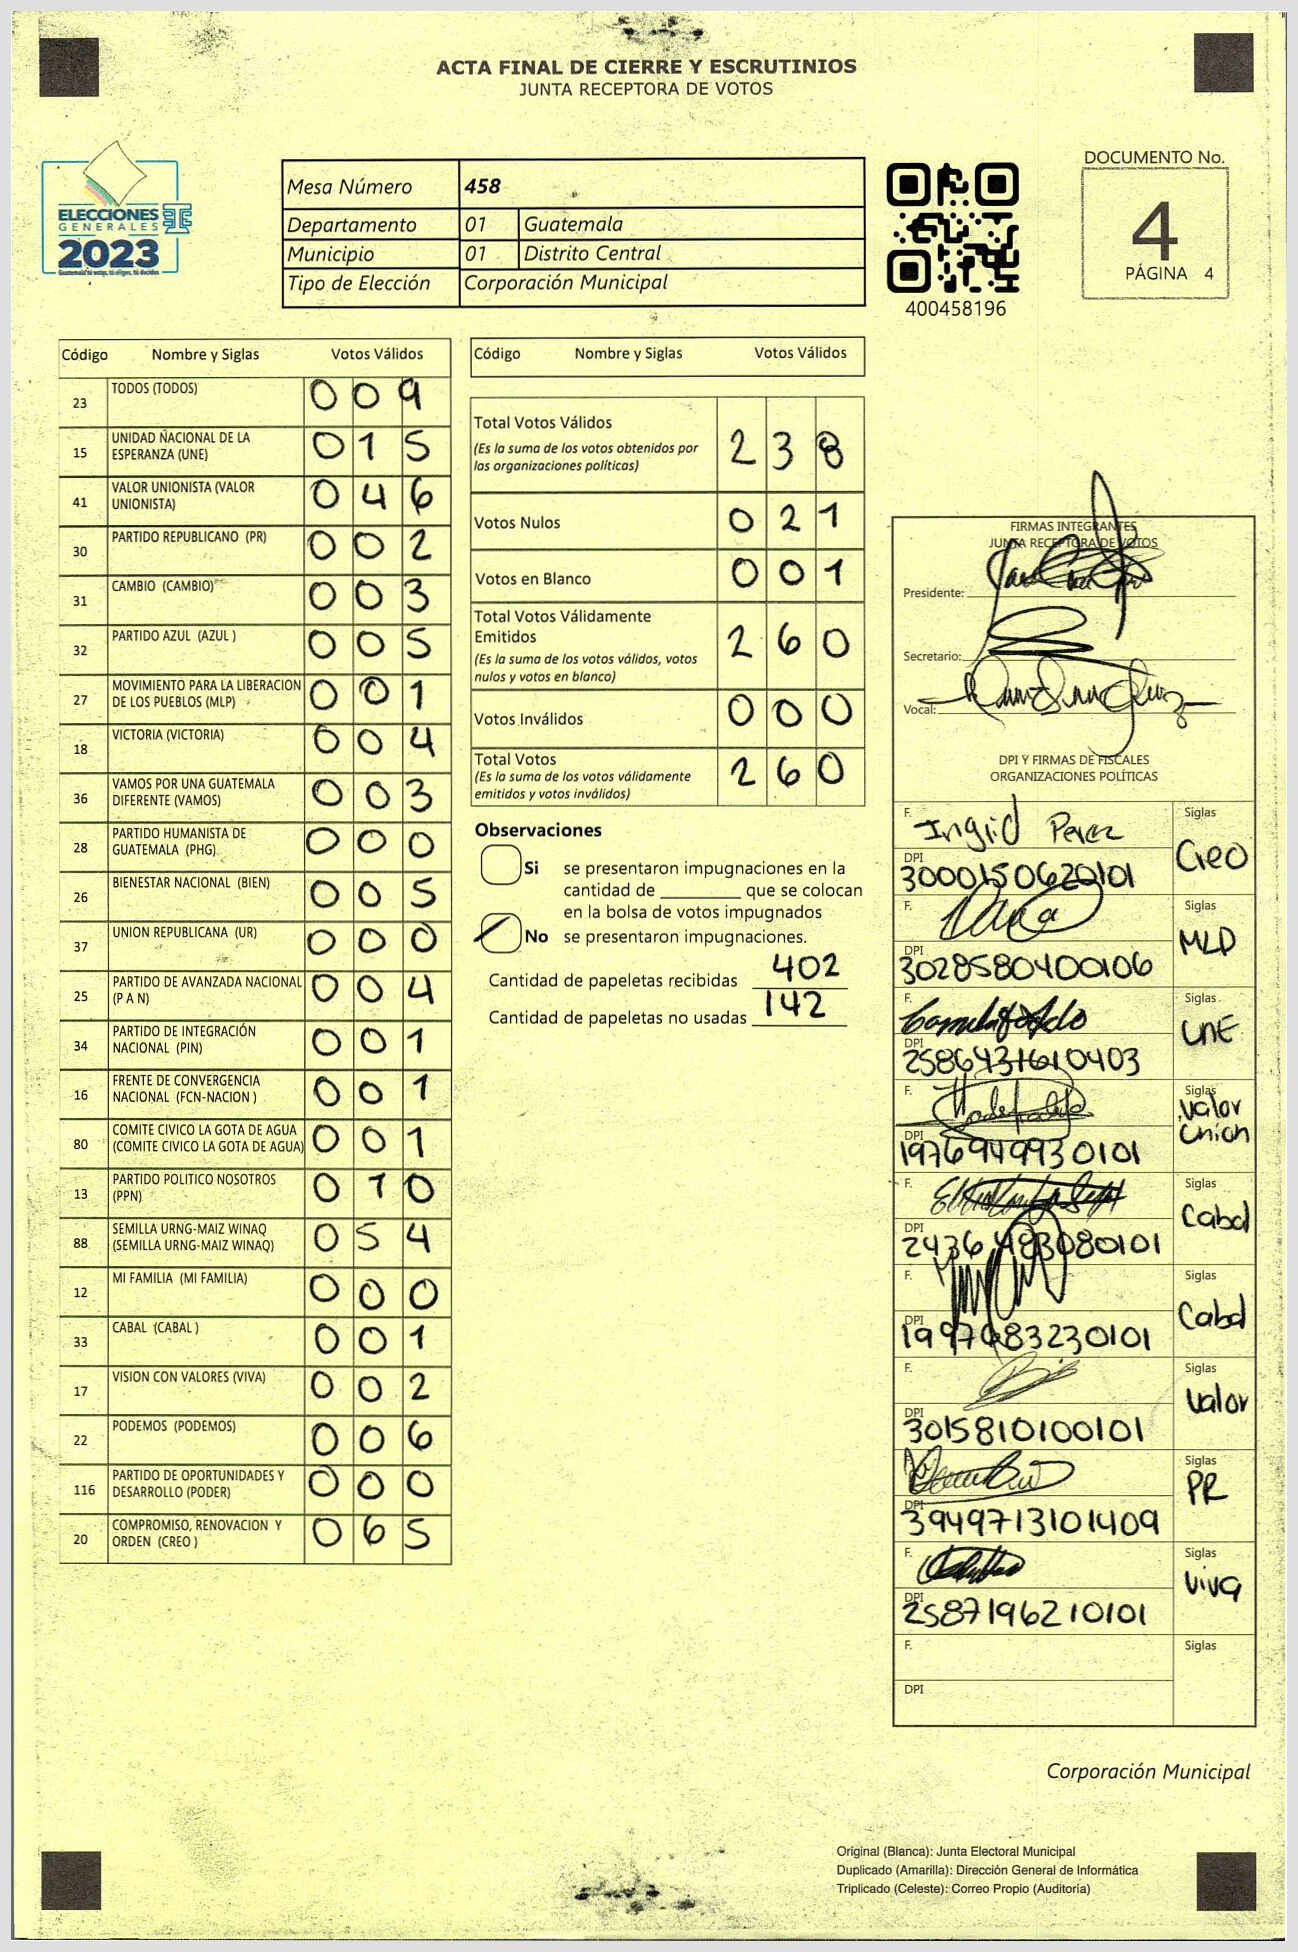 ACTA FINAL DE CIERRE Y ESCRUTINIOS
JUNTA RECEPTORA DE VOTOS
ELECCIONES
GENERALES
2023
Guatemala tú votas, tú eliges, tú decides
Mesa Número 458
Departamento 01 Guatemala
Municipio 01 Distrito Central
Tipo de Elección Corporación Municipal
400458196
DOCUMENTO No.
4
PÁGINA 4
Código Nombre y Siglas Votos Válidos
23 TODOS (TODOS) 009
15 UNIDAD NACIONAL DE LA ESPERANZA (UNE) 015
41 VALOR UNIONISTA (VALOR UNIONISTA) 046
30 PARTIDO REPUBLICANO (PR) 002
31 CAMBIO (CAMBIO) 003
32 PARTIDO AZUL (AZUL ) 005
27 MOVIMIENTO PARA LA LIBERACION DE LOS PUEBLOS (MLP) 001
18 VICTORIA (VICTORIA) 004
36 VAMOS POR UNA GUATEMALA DIFERENTE (VAMOS) 003
28 PARTIDO HUMANISTA DE GUATEMALA (PHG) 000
26 BIENESTAR NACIONAL (BIEN) 005
37 UNION REPUBLICANA (UR) 000
25 PARTIDO DE AVANZADA NACIONAL (P A N) 004
34 PARTIDO DE INTEGRACIÓN NACIONAL (PIN) 001
16 FRENTE DE CONVERGENCIA NACIONAL (FCN-NACION ) 001
80 COMITE CIVICO LA GOTA DE AGUA (COMITE CIVICO LA GOTA DE AGUA) 001
13 PARTIDO POLITICO NOSOTROS (PPN) 010
88 SEMILLA URNG-MAIZ WINAQ (SEMILLA URNG-MAIZ WINAQ) 054
12 MI FAMILIA (MI FAMILIA) 000
33 CABAL (CABAL ) 001
17 VISION CON VALORES (VIVA) 002
22 PODEMOS (PODEMOS) 006
116 PARTIDO DE OPORTUNIDADES Y DESARROLLO (PODER) 000
20 COMPROMISO, RENOVACION Y ORDEN (CREO ) 065
Código Nombre y Siglas Votos Válidos
Total Votos Válidos 238
(Es la suma de los votos obtenidos por
las organizaciones políticas)
Votos Nulos 021
Votos en Blanco 001
Total Votos Válidamente
Emitidos 260
(Es la suma de los votos válidos, votos
nulos y votos en blanco)
Votos Inválidos 000
Total Votos 260
(Es la suma de los votos válidamente
emitidos y votos inválidos)
Observaciones
Si se presentaron impugnaciones en la
cantidad de ________ que se colocan
en la bolsa de votos impugnados
No se presentaron impugnaciones.
Cantidad de papeletas recibidas 402
Cantidad de papeletas no usadas 142
FIRMAS INTEGRANTES
JUNTA RECEPTORA DE VOTOS
Presidente:
Secretario:
Vocal:
DPI Y FIRMAS DE FISCALES
ORGANIZACIONES POLÍTICAS
F. Ingrid Perez Siglas
DPI 3000150620101 Creo
F. Siglas
DPI 3028580400106 MLP
F. Siglas
DPI 2586431610403 UNE
F. Siglas
DPI 1976949930101 Valor Union
F. Siglas
DPI 2436483080101 Cabal
F. Siglas
DPI 1997683230101 Cabal
F. Siglas
DPI 3015810100101 Valor
Siglas
DPI 3949713101409 PR
F. Siglas
DPI 2587196210101 Viva
F. Siglas
DPI
Corporación Municipal
Original (Blanca): Junta Electoral Municipal
Duplicado (Amarilla): Dirección General de Informática
Triplicado (Celeste): Correo Propio (Auditoría)